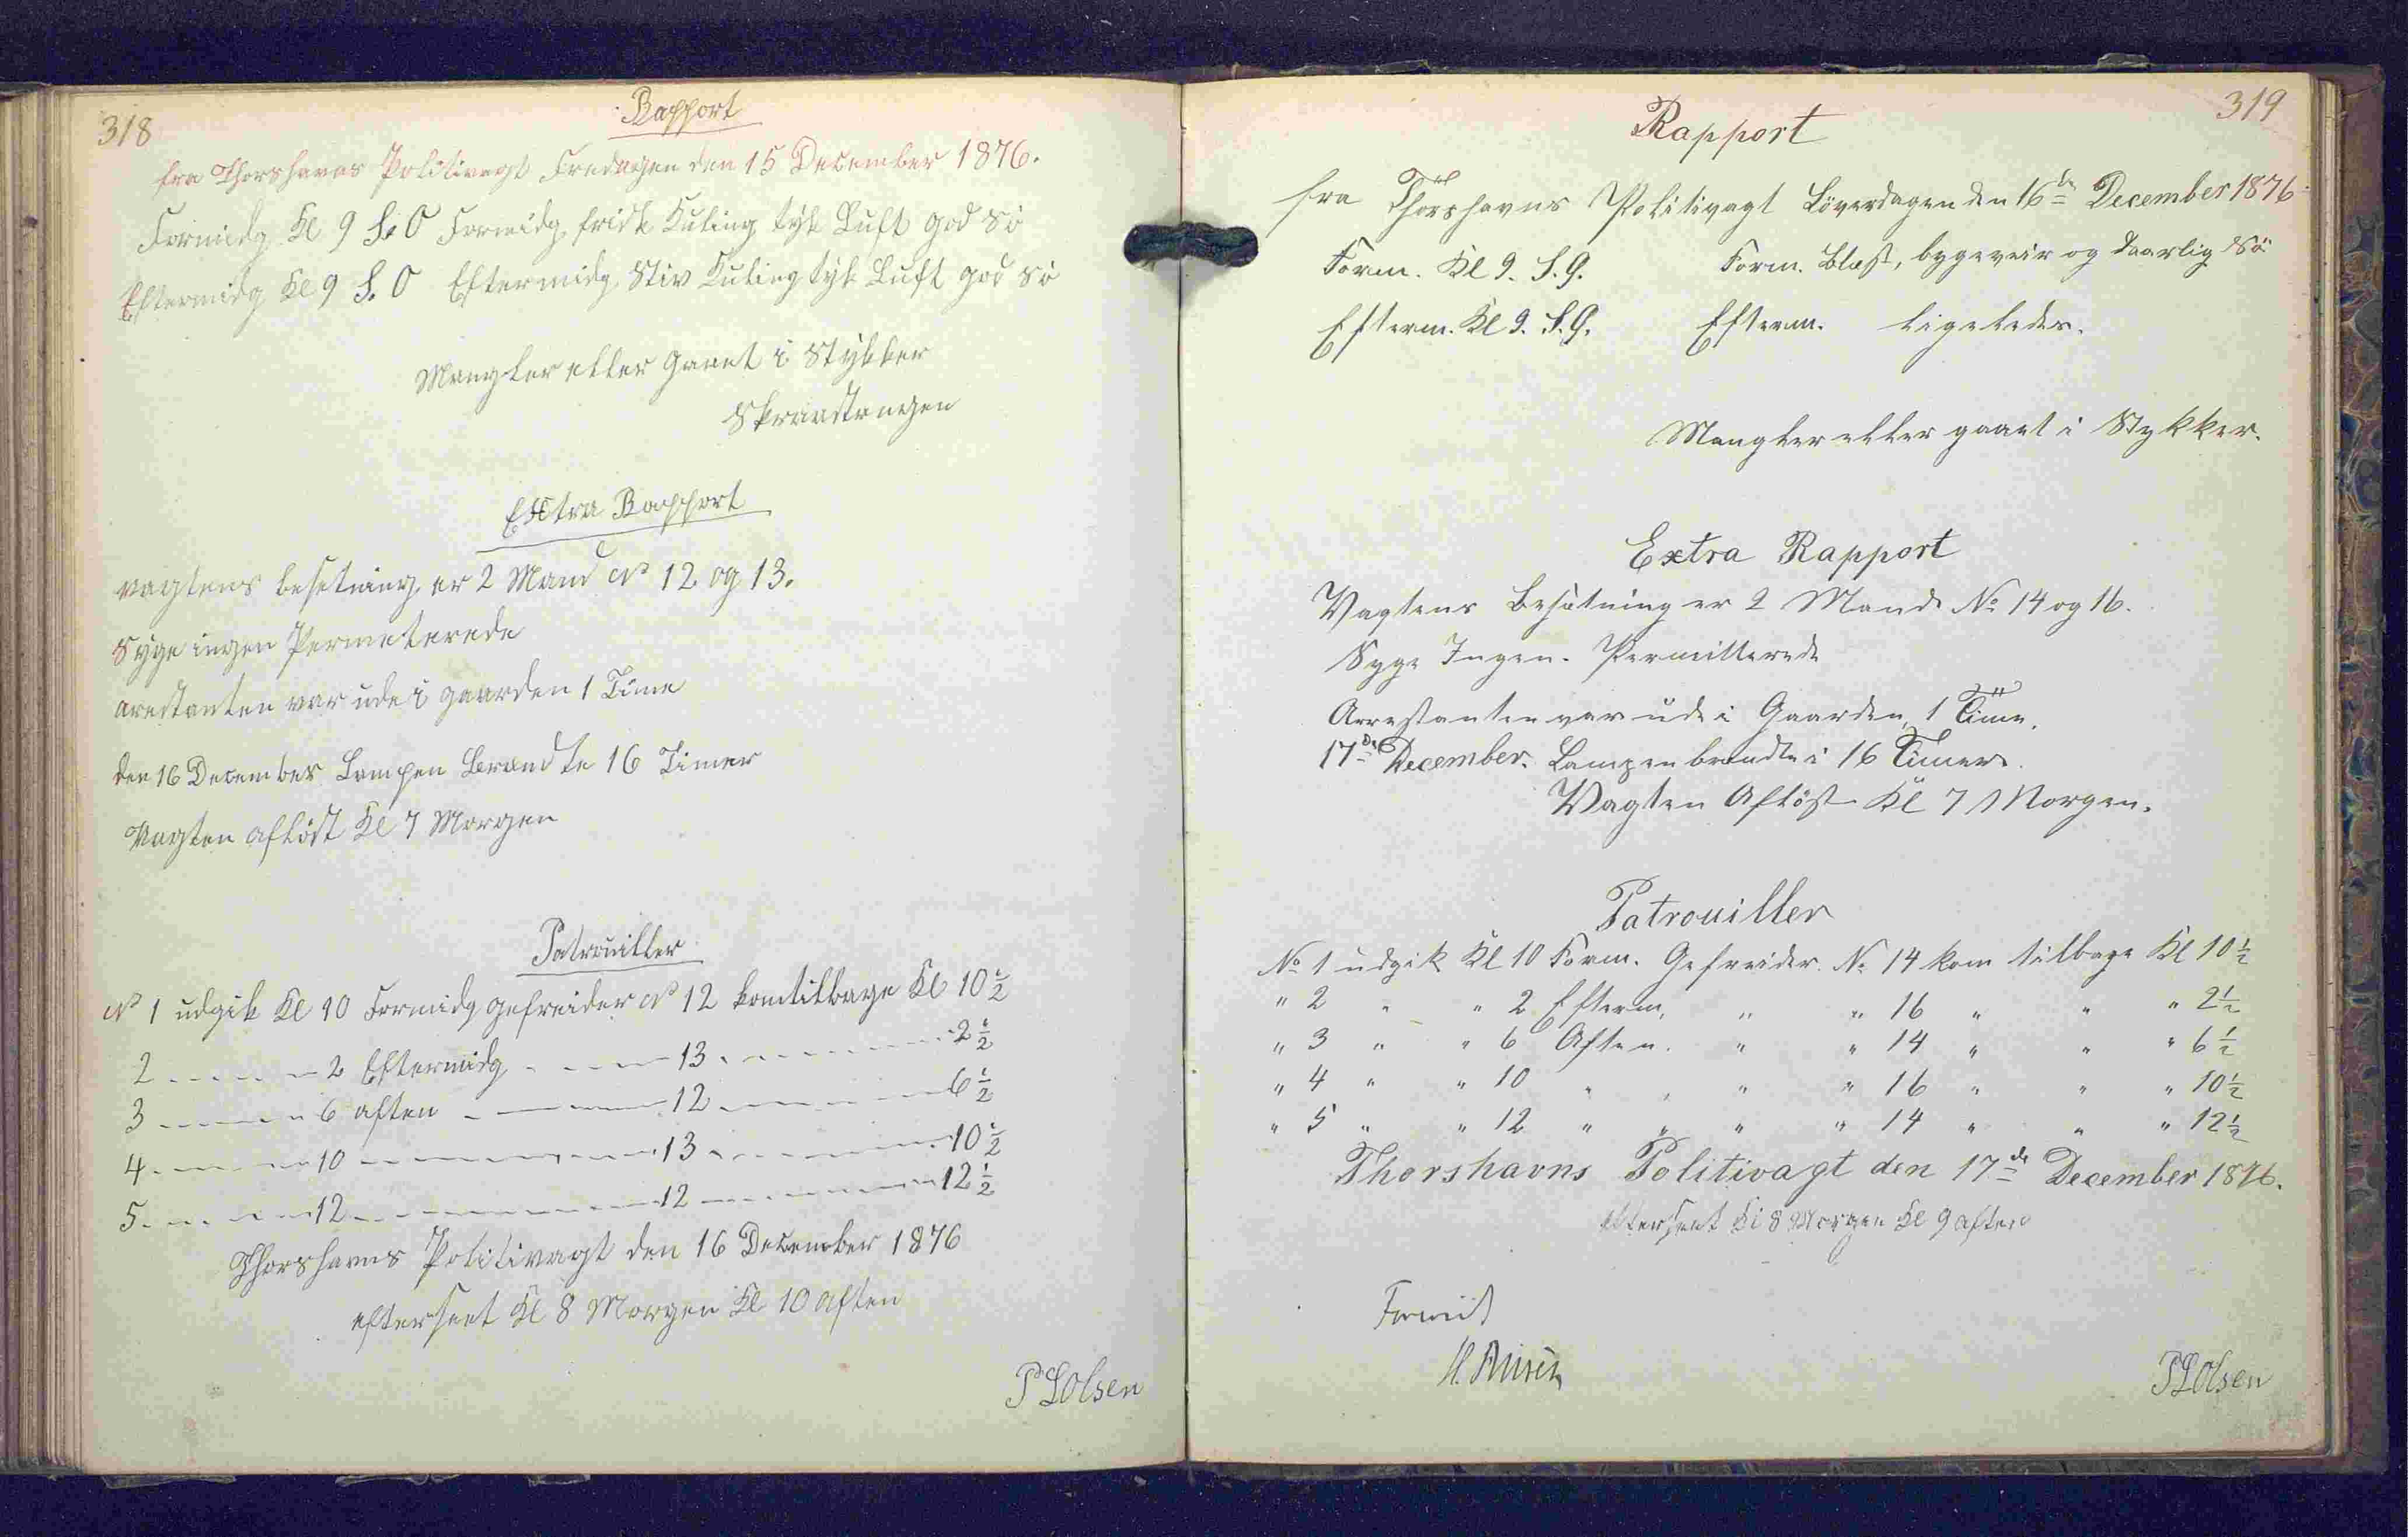 318
Rapport
fra Thorshavns Politivagt Fredagen den 15 December 1876.
Formidg Kl 9 S.O Formidg frisk Kuling tyk Luft god Sö
Eftermidg Kl 9 S.O Eftermidg Stiv Kuling tyk Luft god Sö
Mangler eller gaaet i Stykker
Skraastangen
Extra Rapport
vagtens besetning er 2 Mand No 12 og 13.
Syge ingen Permeterede
arestanten var ude i gaarden 1 Time
den 16 December Lampen Brændte 16 Timer
Vagten aflöst Kl 7 Morgen
Patrouiller
No 1 udgik Kl 10 Formidg gefreider No 12 kom tilbage Kl 10 1/2
2 - - - - 2 Eftermidg - - - 13 - - - - 2 1/2
3 - - - - 6 aften - - - 12 - - - - 6 1/2
4 - - - - 10 - - - - 13 - - - - 10 1/2
5 - - - - 12 - - - - 12 - - - - 12 1/2
Thorshavns Politivagt den 16 December 1876
efterseet Kl 8 Morgen Kl 10 aften
P L Olsen
319
Rapport
fra Thorshavns Politivagt Löverdagen den 16de December 1876.
Form. Kl 9. S.O. Form. blæst, bygeveir og daarlig Sö
Efterm. Kl 9. S.O. Efterm. ligeledes.
Mangler eller gaaet i Stykker.
Extra Rapport
Vagtens Besætning er 2 Mand No 14 og 16.
Syge Ingen. Permitterede
Arrestanten var ude i Gaarden 1 Time.
17de December. Lampen brændte i 16 Timer.
Vagten Aflöst Kl 7 Morgen.
Patrouiller
No 1 udgik Kl 10 Form. Gefreider No 14 kom tilbage Kl 10 1/2
" 2 " " 2 Efterm. " " 16 " " " 2 1/2
" 3 " " 6 Aften. " " 14 " " " 6 1/2
" 4 " " 10 " " " " 16 " " " 10 1/2
" 5 " " 12 " " " " 14 " " " 12 1/2
Thorshavns Politivagt den 17de December 1876.
efterseet Kl 8 Morgen Kl 9 aften
P L Olsen